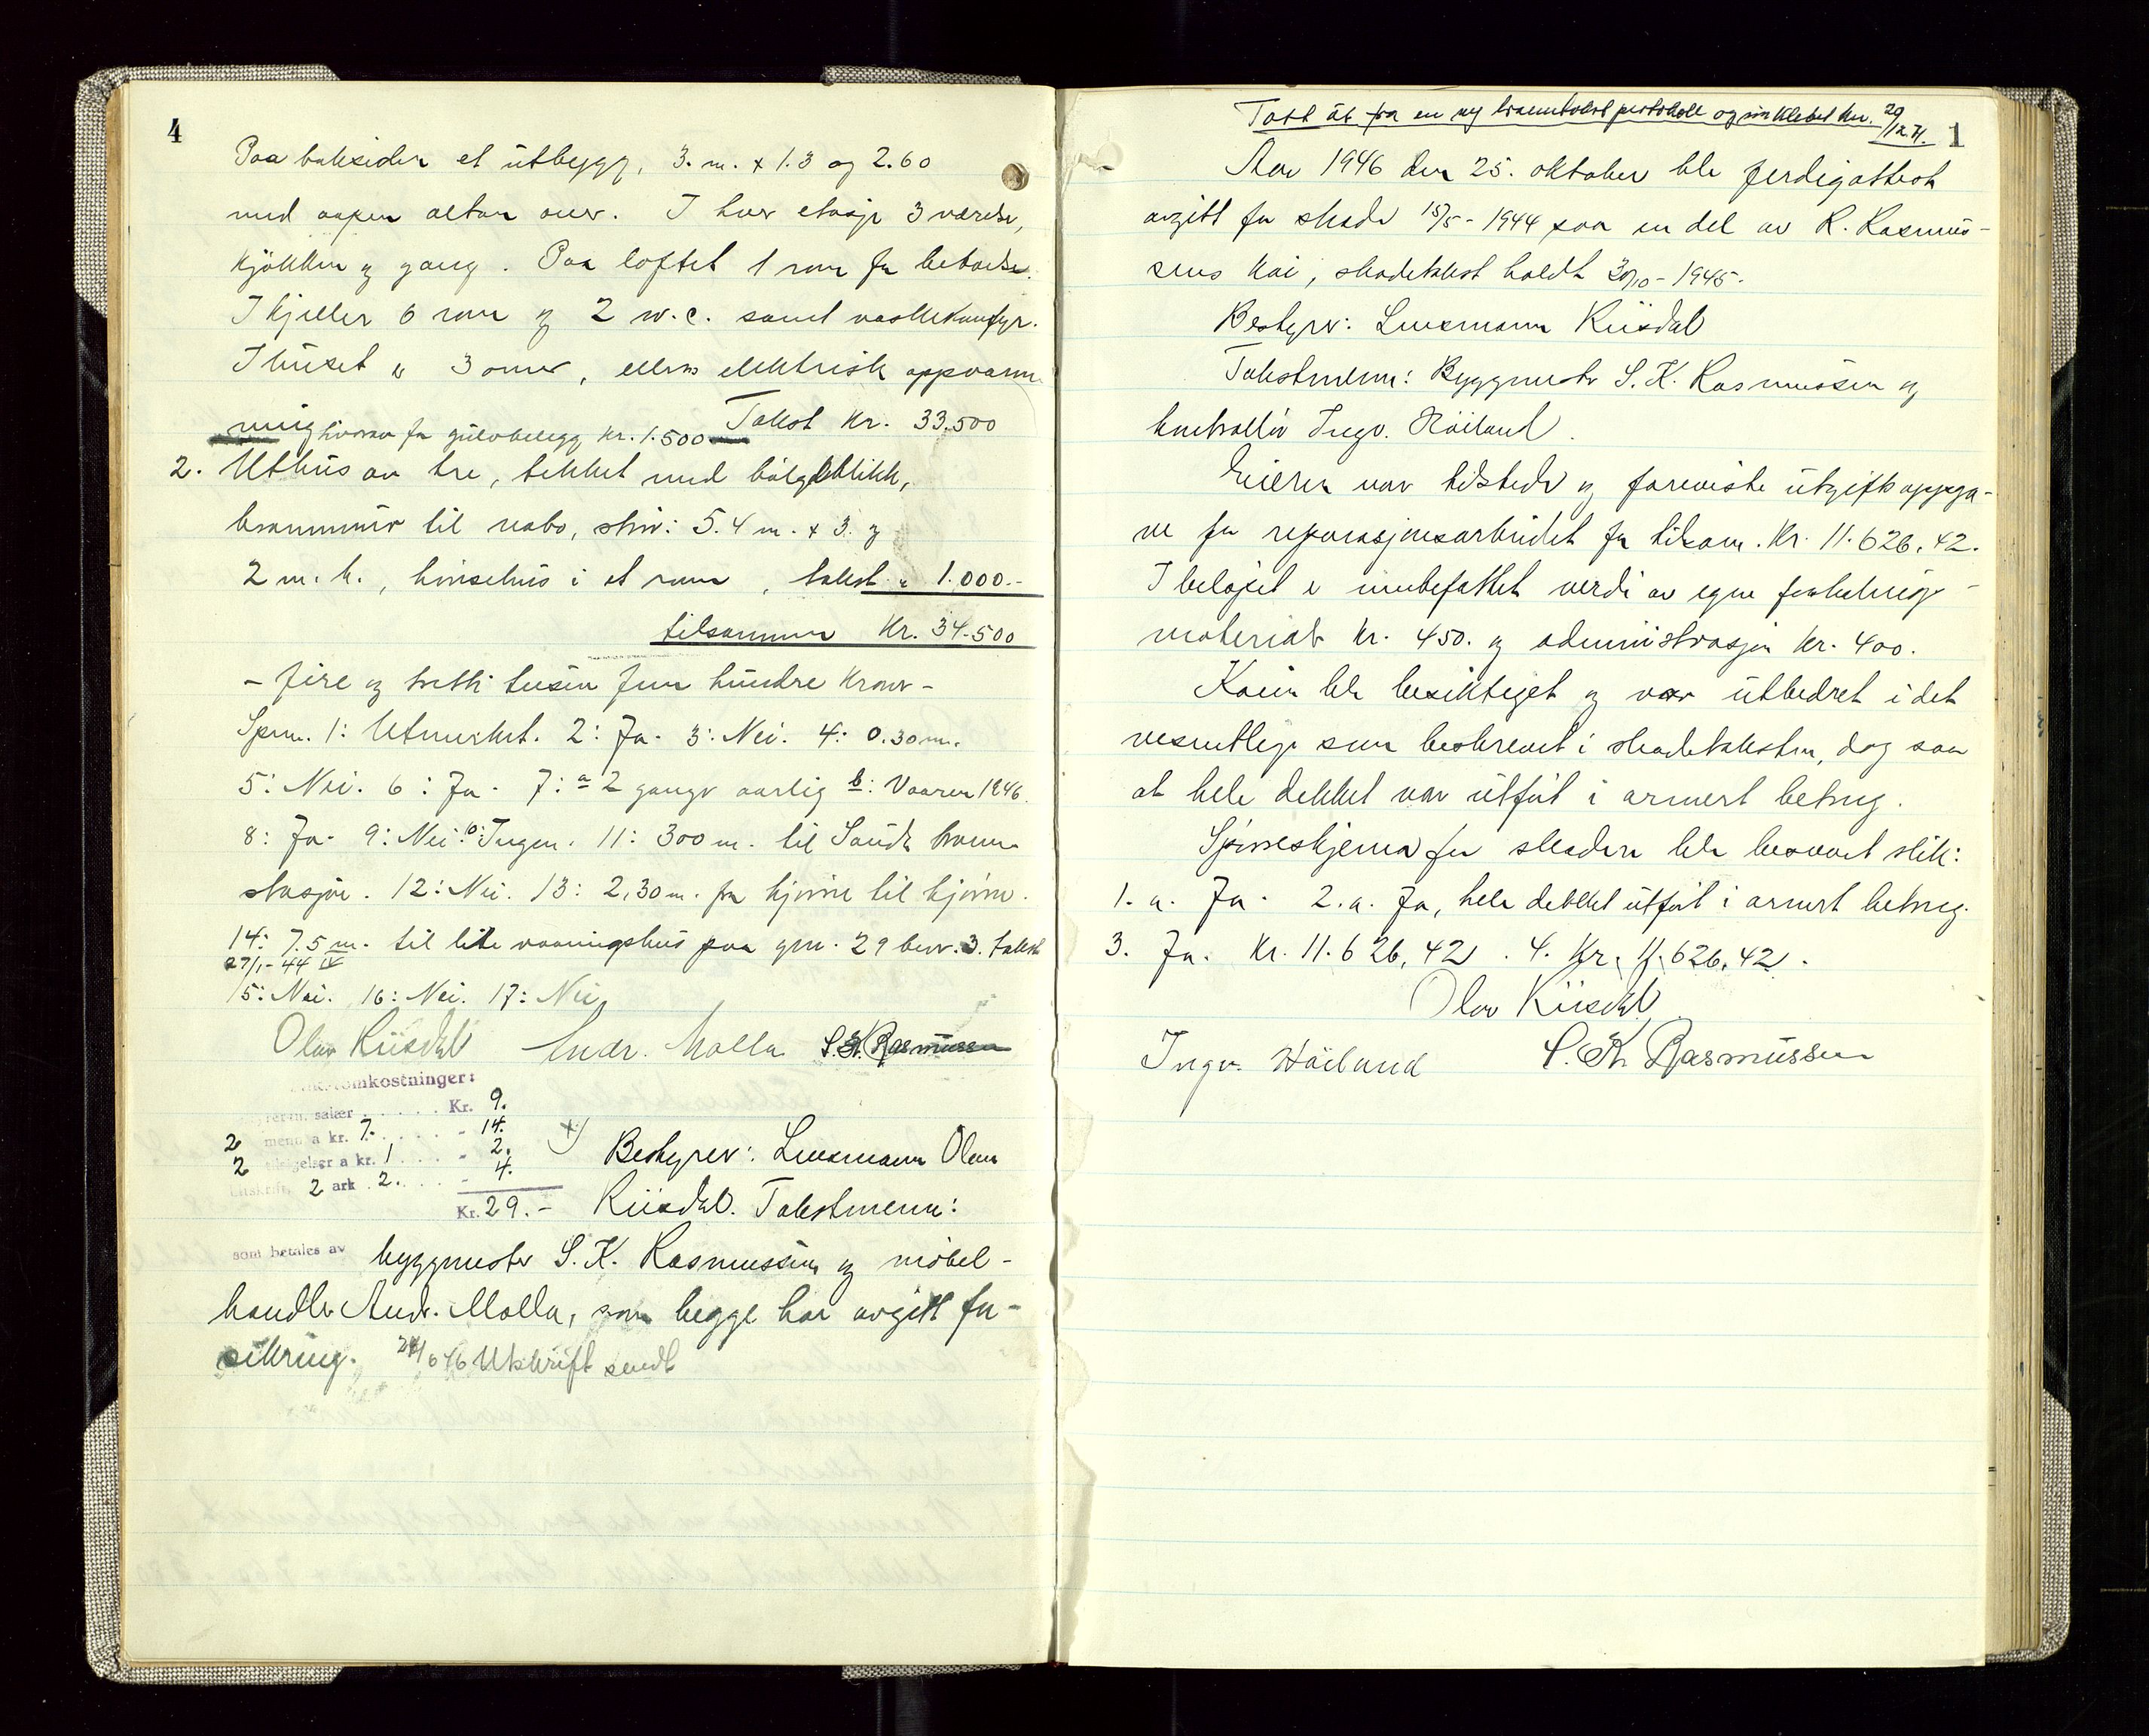 4
Paa baksiden et utbygg, 3. m. x 1.3 og 2.60
med aapen altan over. I hver etasje 3 værelse,
kjökken og gang. Paa loftet 1 rom for beboelse.
I kjeller 6 rom og 2 w.c. samt vaskekomfyr.
I huset er 3 ovner, ellers elektrisk oppvarm
ning hvorav for gulvbelegg kr. 1.500 Takst kr. 33.500
2. Uthus av tre, tekket med bölgeblikk,
brannmur til nabo, strr: 5.4 m. x 3. og
2 m. h., hönsehus i et rom, takst " 1.000.-
tilsammen Kr. 34.500
- fire og tretti tusen fem hundre kroner -
Spm. 1: Utmerket. 2: Ja. 3: Nei. 4: 0.30 m.
5: Nei. 6: Ja. 7: a 2 ganger aarlig b: Vaaren 1946.
8: Ja. 9: Nei. 10: Ingen. 11: 300 m. til Sauda brann
stasjon. 12: Nei. 13: 2,30 m. fra hjörne til hjörne.
14: 7.5 m. til lite vaaningshus paa gnr. 29 bnr. 3. takst
27/1-44 IV
15: Nei. 16: Nei. 17: Nei
Olav Riisdal Andr. Molla S. K. Rasmussen
omkostninger:
salær . . . . . Kr. 9.
2 menn a kr. 7. . . . . - 14.
2 a kr. 1 . . . - 2.
2 ark . 2. . . . - 4.
Kr. 29.-
x) Bestyrer: Lensmann Olav
Riisdal. Takstmenn:
som betales av
byggmester S. K. Rasmussen og möbel-
handler Andr. Molla, som begge har avgitt for-
sikring. 24/6 46 Utskrift sendt
Tatt ut fra en ny branntakst protokoll og innklebet her. 29/12.71.
1
Aar 1946 den 25. oktober ble ferdigattest
avgitt for skade 15/5-1944 paa en del av R. Rasmus-
sens kai, skadetakst holdt 30/10-1945.
Bestyrer: Lensmann Riisdal
Takstmenn: Byggmester S. K. Rasmussen og
kontrollör Ingv. Höiland.
Eieren var tilstede og foreviste utgiftsoppga-
ve for reparasjonsarbeidet for tilsam. Kr. 11.626,42.
I belöpet er innbefattet verdi av egne forhalings-
materialr kr. 450. og administrasjon kr. 400.
Kaien ble besiktiget og var utbedret i det
vesentlige som beskrevet i skadetaksten, dog saa
at hele dekket var utfört i armert betong.
Spörreskjema for skaden ble besvart slik:
1. a. Ja. 2. a. Ja, hele dekket utfört i armert betong.
3. Ja. Kr. 11.626,42. 4. Kr. 11.626,42.
Olav Riisdal
Ingv. Höiland S. K. Rasmussen